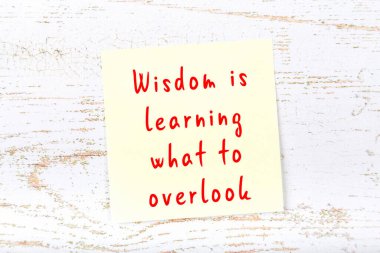 Wisdom is
learning
what to
overlook